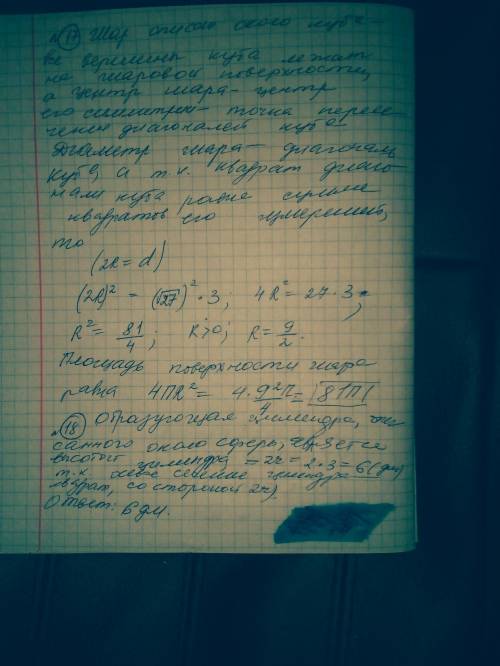 № 17 Шар описан около куба -
все вершины куба лежат
на шаровой поверхности,
а центр шара - центр
его симметрии - точка пересе-
чения диагоналей куба
Диаметр шара - диагональ
куба, а т.к. квадрат диаго-
нали куба равен сумме
квадратов его измерений,
то
(2R = d)
(2R)² = (√27)² · 3; 4R² = 27 · 3;
R² = 81/4; R>0; R = 9/2.
Площадь поверхности шара
равна 4ПR² = 4 · 9²П/4 = 81П
№ 18 Образующая цилиндра, опи-
санного около сферы, является
высотой цилиндра = 2r = 2·3 = 6 (дм)
т.к. осевое сечение цилиндра
квадрат, со стороной 2r)
Ответ: 6 дм.